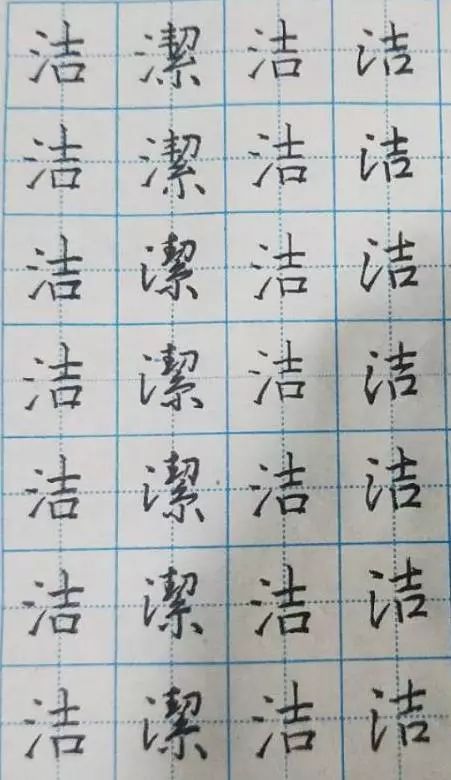 洁 潔 洁 洁
洁 潔 洁 洁
洁 潔 洁 洁
洁 潔 洁 洁
洁 潔 洁 洁
洁 潔 洁 洁
洁 潔 洁 洁